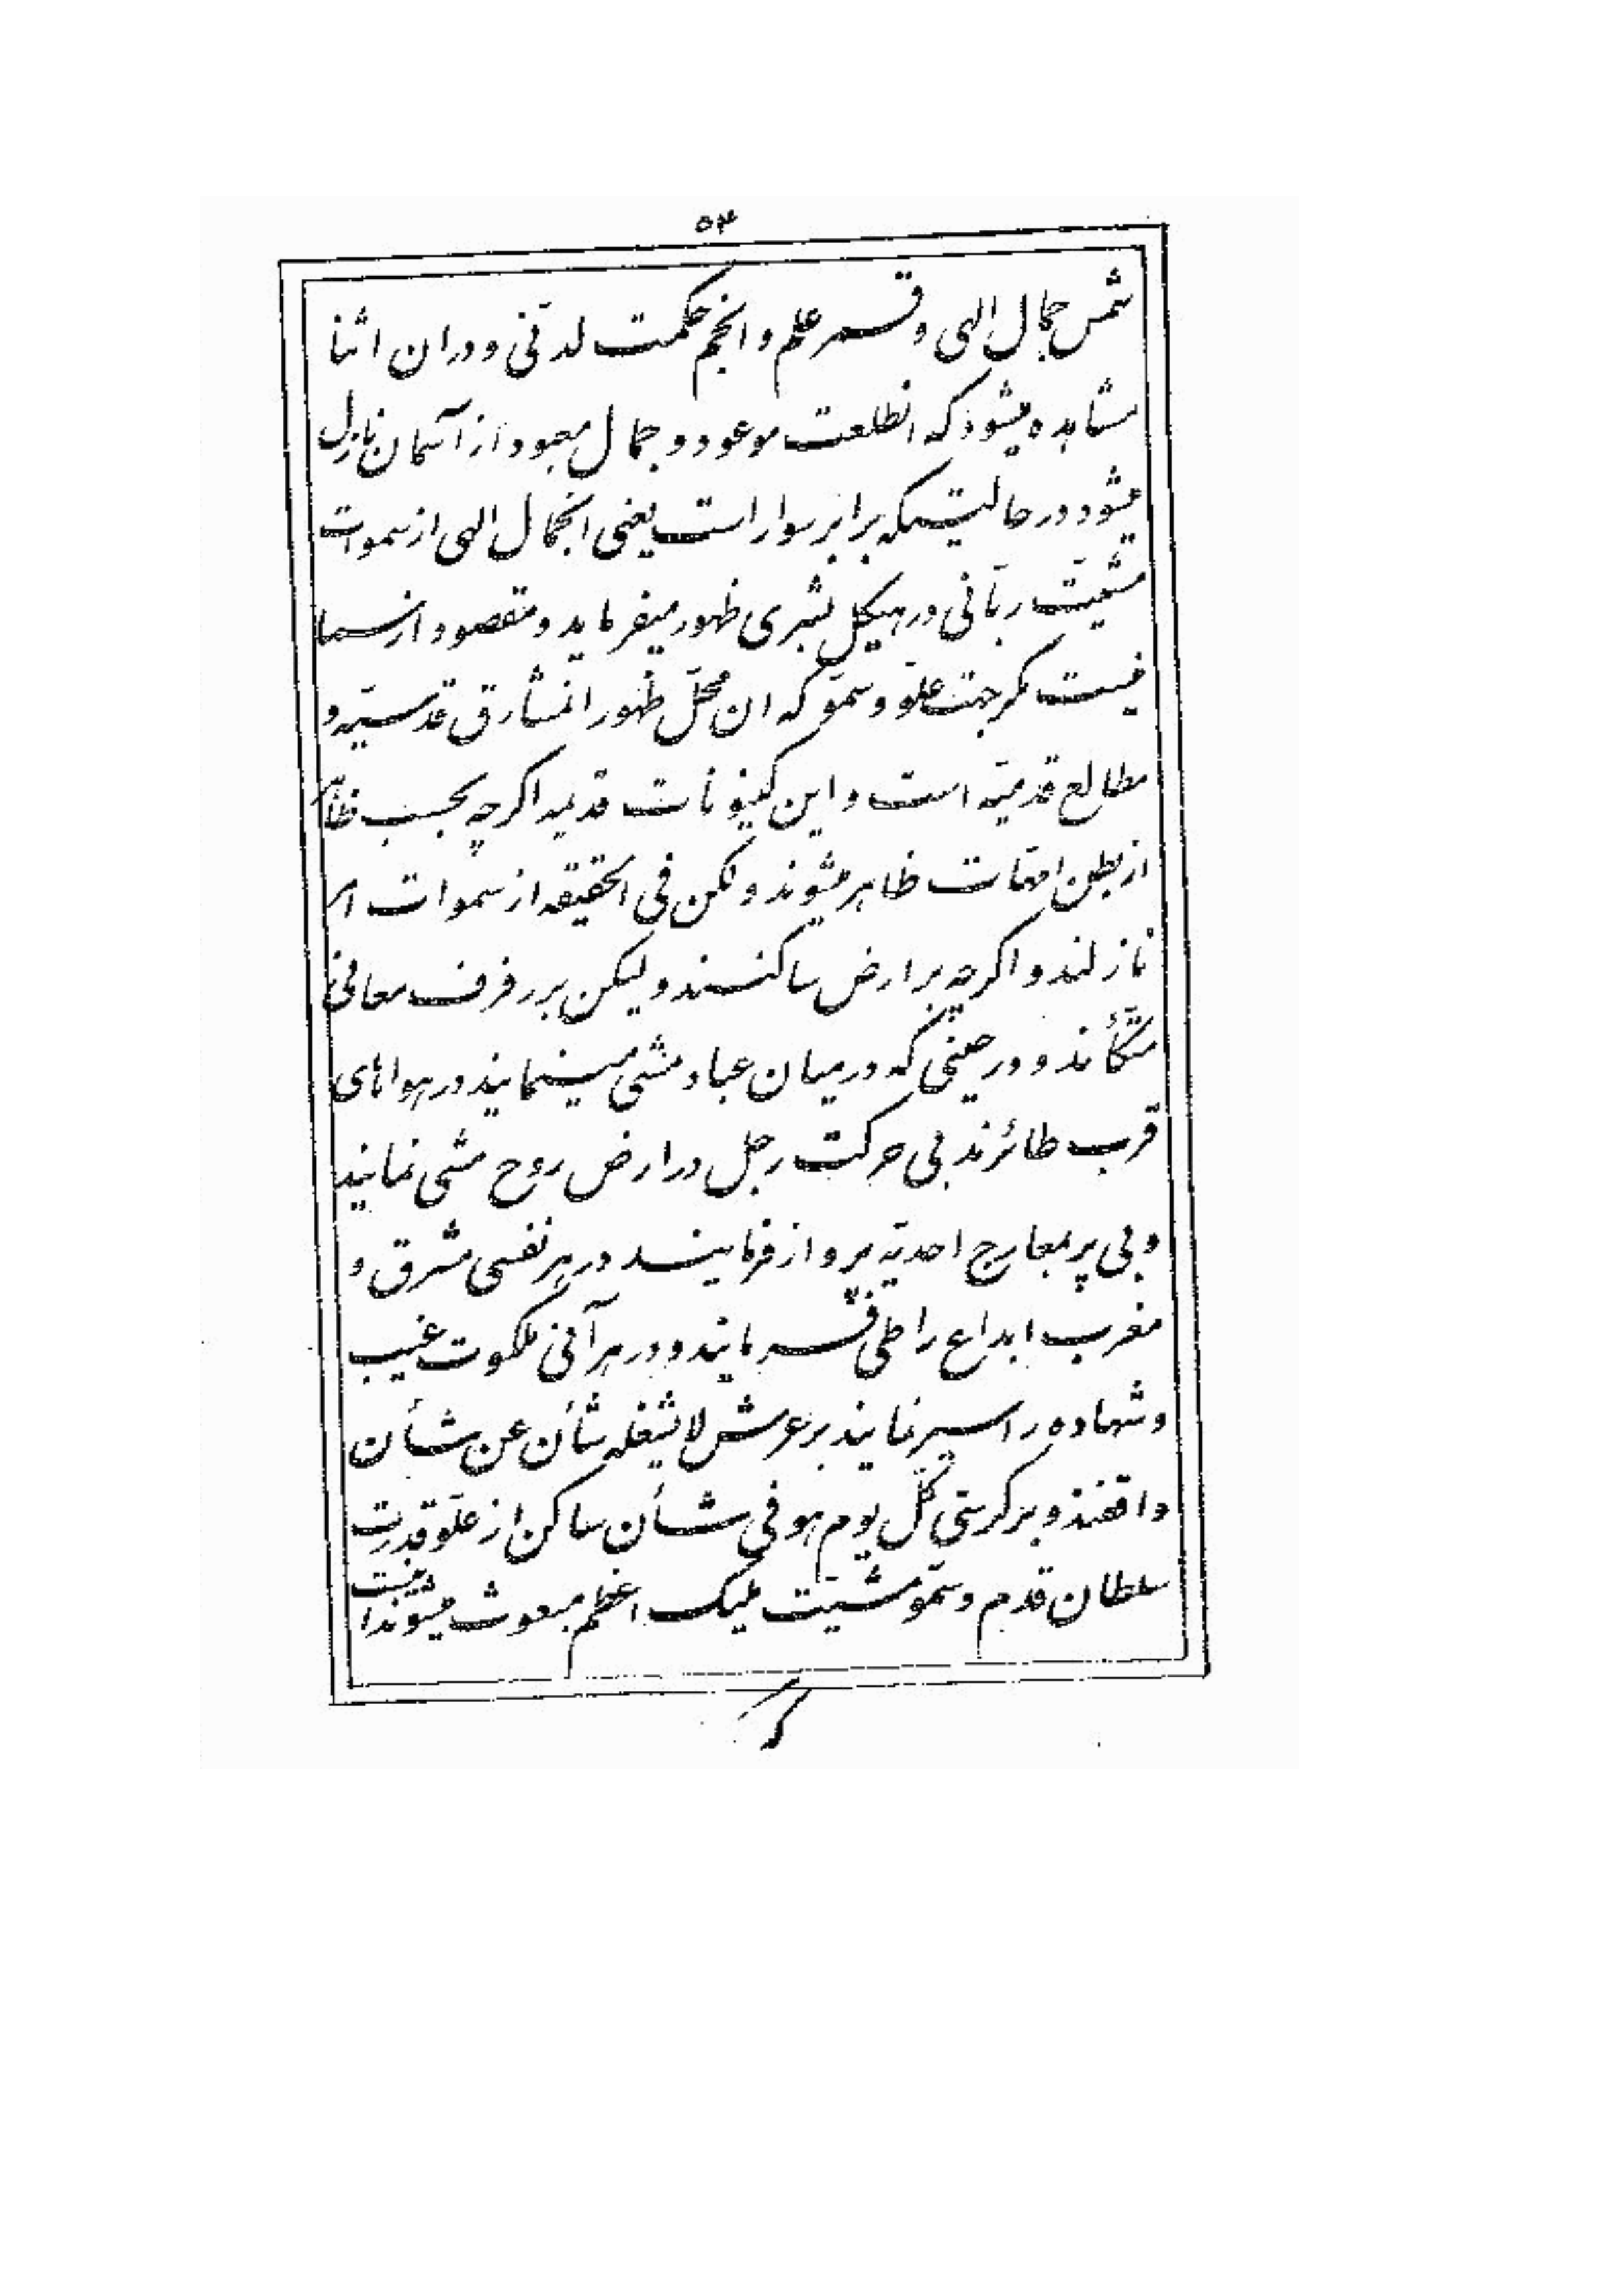 ۵۳
شمس جمال الهی و قمر علم و انجم حکمت لدنّی و دران اثنا
مشاهده میشود که انطلعت موعود و جمال معبود از آسمان نازل
میشود در حالتیکه بر ابر سوار است یعنی انجمال الهی از سموات
مشیّت ربّانی در هیکل بشری ظهور میفرماید و مقصود از سما
نیست مگر جهت علوّ و سموّ که ان محلّ ظهور انمشارق قدسیّه و
مطالع قدمیّه است و این کینونات قدیمه اگرچه بحسب ظاهر
از بطن امّهات ظاهر میشوند ولکن فی الحقیقه از سموات امر
نازلند و اگرچه بر ارض ساکنند ولیکن بر رفرف معانی
متّکأند و در حینی که در میان عباد مشی مینمایند در هواهای
قرب طائرند بی حرکت رجل در ارض روح مشی نمایند
و بی پر بمعارج احدیّه پرواز فرمایند در هر نفسی مشرق و
مغرب ابداع را طیّ فرمایند و در هر آنی ملکوت غیب
و شهاده را سیر نمایند بر عرش لا یشغله شأن عن شأن
واقفند و بر کرسیّ کلّ یوم هو فی شأن ساکن از علوّ قدرت
سلطان قدم و سموّ مشیّت ملیک اعظم مبعوث میشوند اینست
که